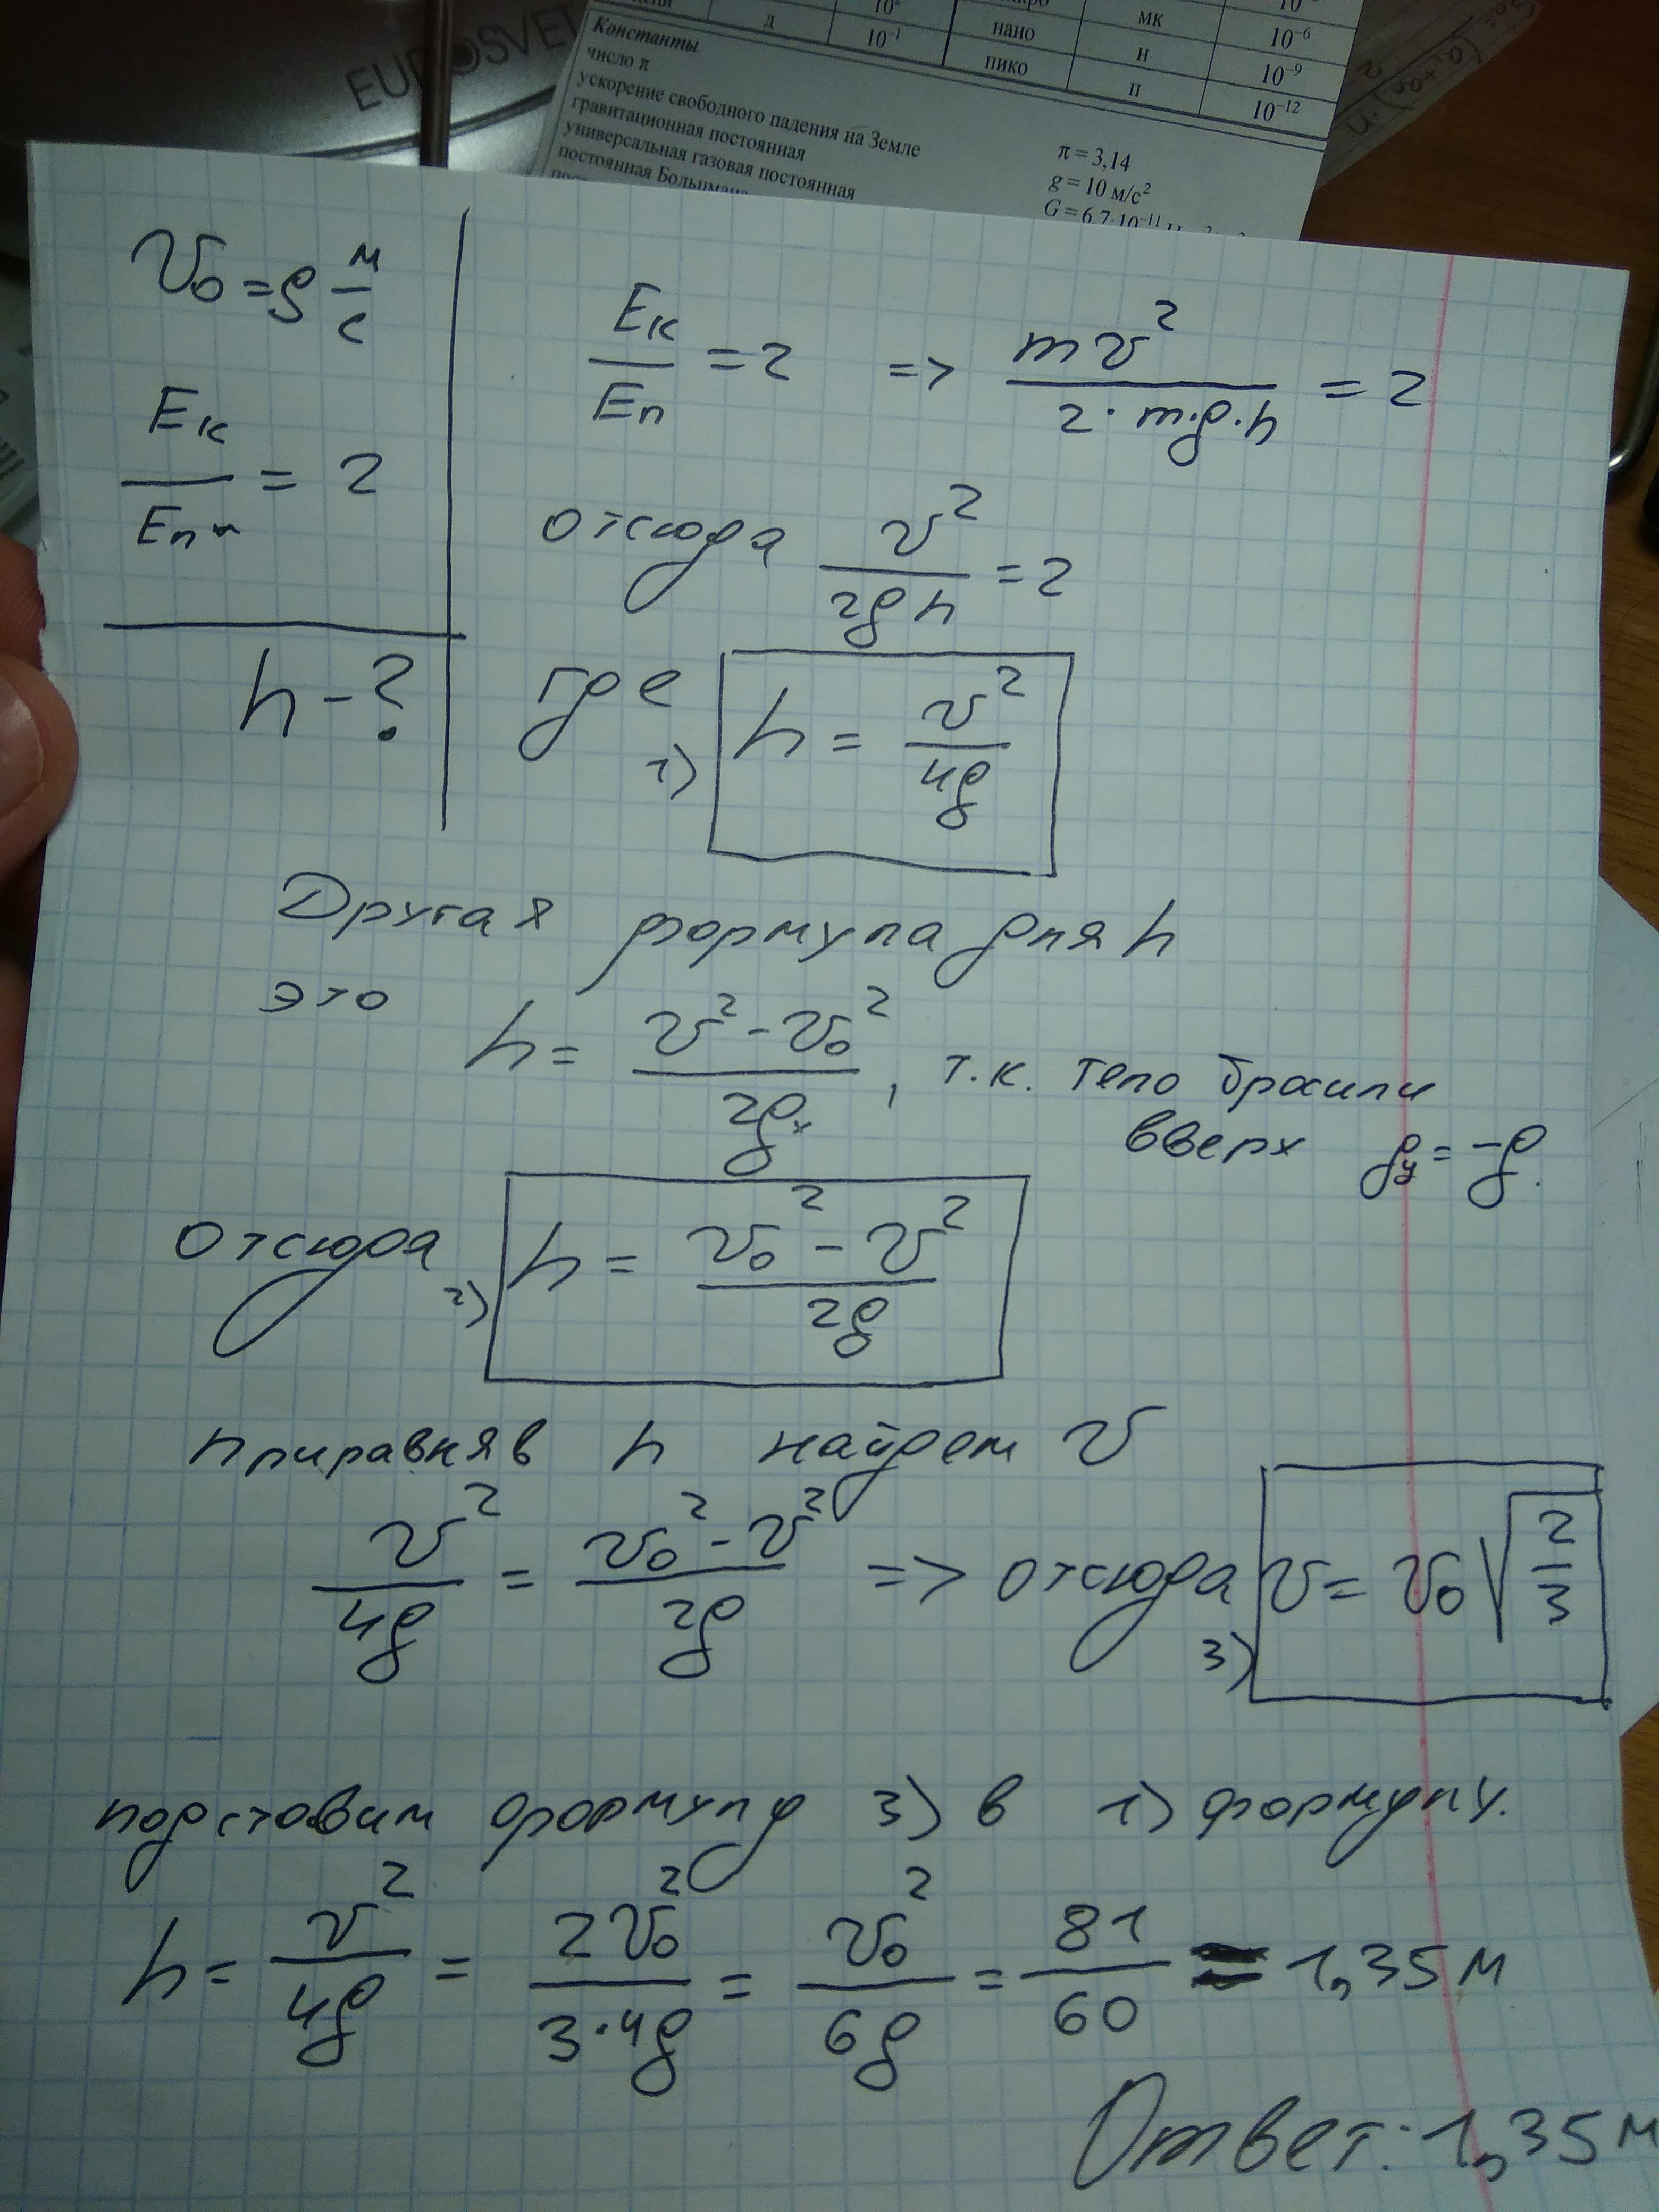 EUROSVET
10²
мк
10⁻⁶
д
10⁻¹
нано
н
10⁻⁹
пико
п
10⁻¹²
Константы
число π
π = 3,14
ускорение свободного падения на Земле
g = 10 м/с²
гравитационная постоянная
G = 6,7·10⁻¹¹
универсальная газовая постоянная
постоянная Больцмана
v₀ = 9 м/с
Eк/Eп = 2
h - ?
Eк/Eп = 2 => mv²/(2·m·g·h) = 2
отсюда v²/(2gh) = 2
где 1) h = v²/(4g)
Другая формула для h
это h = (v² - v₀²)/(2gₓ), т.к. тело бросили
вверх gᵧ = -g.
Отсюда 2) h = (v₀² - v²)/(2g)
приравняв h найдем v
v²/(4g) = (v₀² - v²)/(2g) => отсюда 3) v = v₀√(2/3)
подставим формулу 3) в 1) формулу.
h = v²/(4g) = 2v₀²/(3·4g) = v₀²/(6g) = 81/60 = 1,35 м
Ответ: 1,35 м